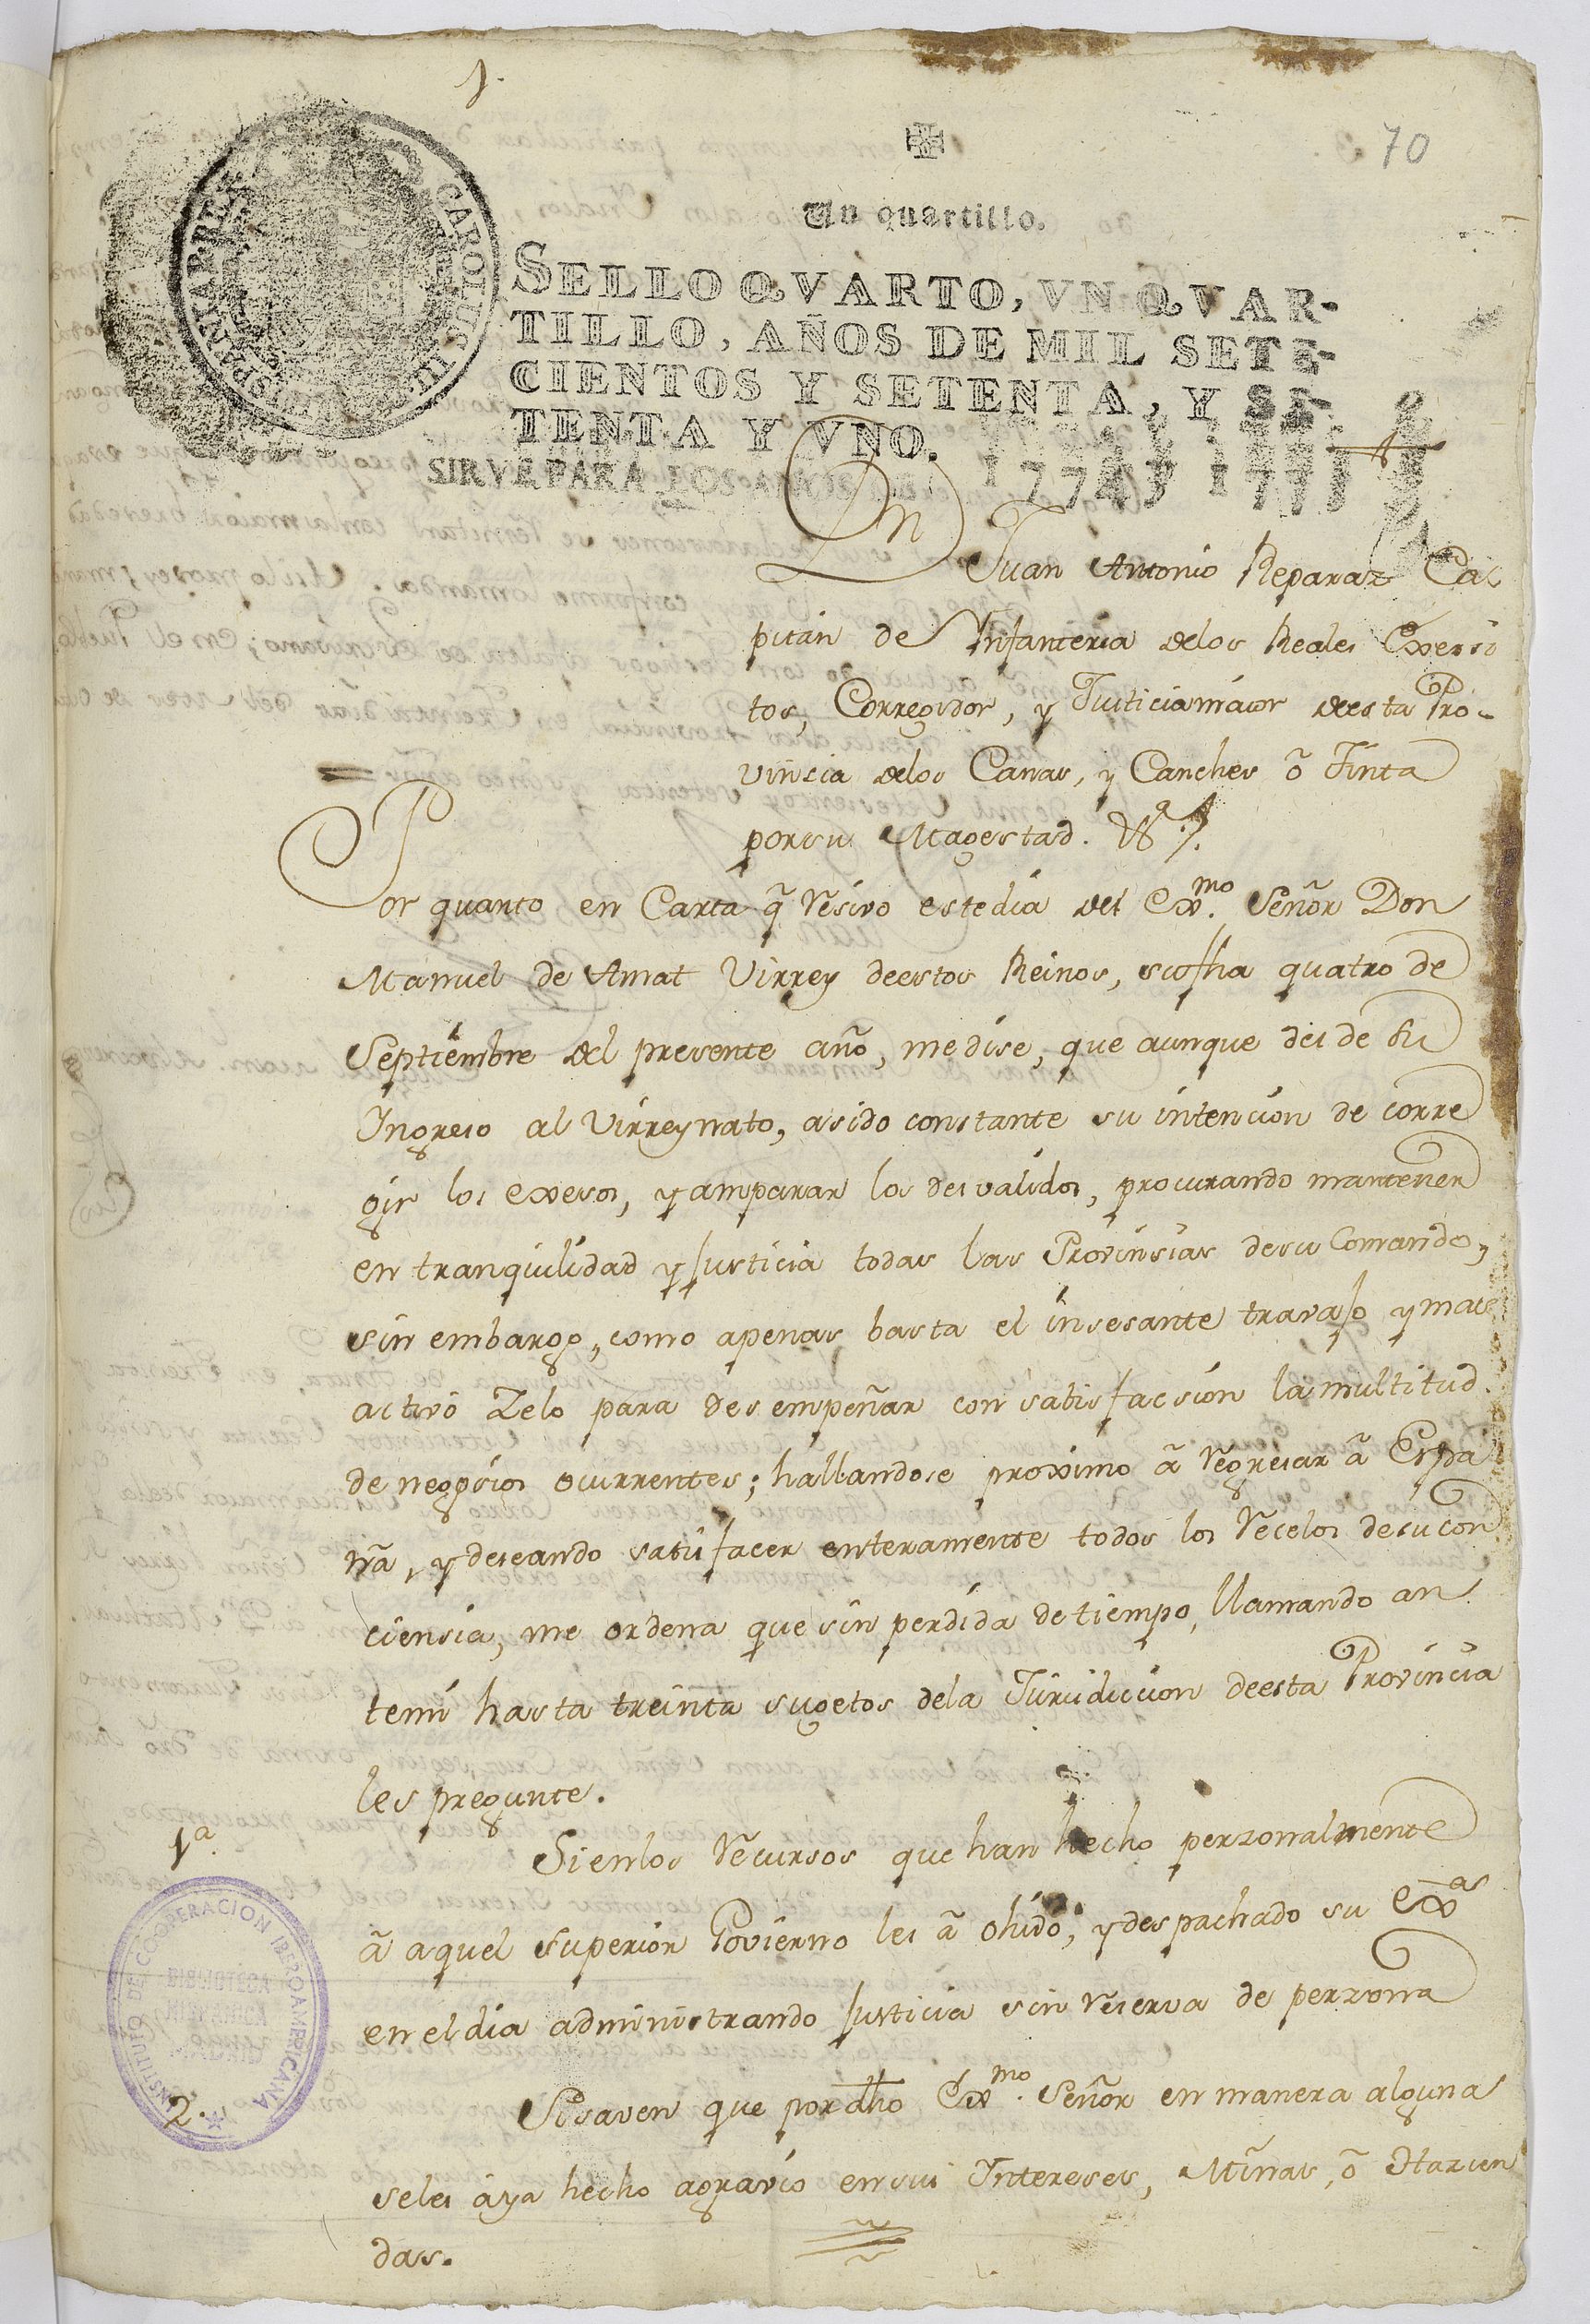 1.
70
Un quartillo.
SELLO QVARTO, VN QVAR-
TILLO, AÑOS DE MIL SETE-
CIENTOS Y SETENTA, Y SE-
TENTA Y VNO.
SIRVE PARA LOS AÑOS DE 1774 y 1775
CAROLUS III
Dn Juan Antonio Reparaz Ca
pitan de Infanteria delos Reales Exersi
tos, Corregidor, y Justiciamaior deesta Pro-
vinsia delos Canas, y Canches ô Tinta
por su Magestad. Va.
Por quanto en Carta q̃ Resivo estedia del Exmo. Señor Don
Manuel de Amat Virrey deestos Reinos, sufha quatro de
Septiembre del presente año, medise, que aunque desde su
Ingreso al Virreynato, asido constante su intencion de corre
gir los exesos, y amparar los desvalidos, procurando mantener
en tranquilidad y Justicia todas las Provinsias desu Comando,
sin embargo, como apenas basta el insesante travajo y mas
activo Zelo para desempeñar con satisfacsion la multitud
de negosios ocurrentes; hallandose proximo â Regresar â Espa
ña, y deseando satisfacer enteramente todos los Recelos desu con
ciensia, me ordena que sin perdida de tiempo, llamando an
temi hasta treinta sugetos dela Jurisdiccion deesta Provincia
les pregunte.
1a. Sienlos Recursos que han hecho perzonalmente
â aquel Superior Govierno les â ohido, y despachado su Exa
en eldia administrando Justicia sin Reserva de perzona
2. Sisaven que por dho Exmo. Señor en manera alguna
seles aya hecho agravio ensus Intereses, Minas, ô Hacien
das.
INSTITUTO DE COOPERACION IBEROAMERICANA
BIBLIOTECA
HISPANICA
MADRID